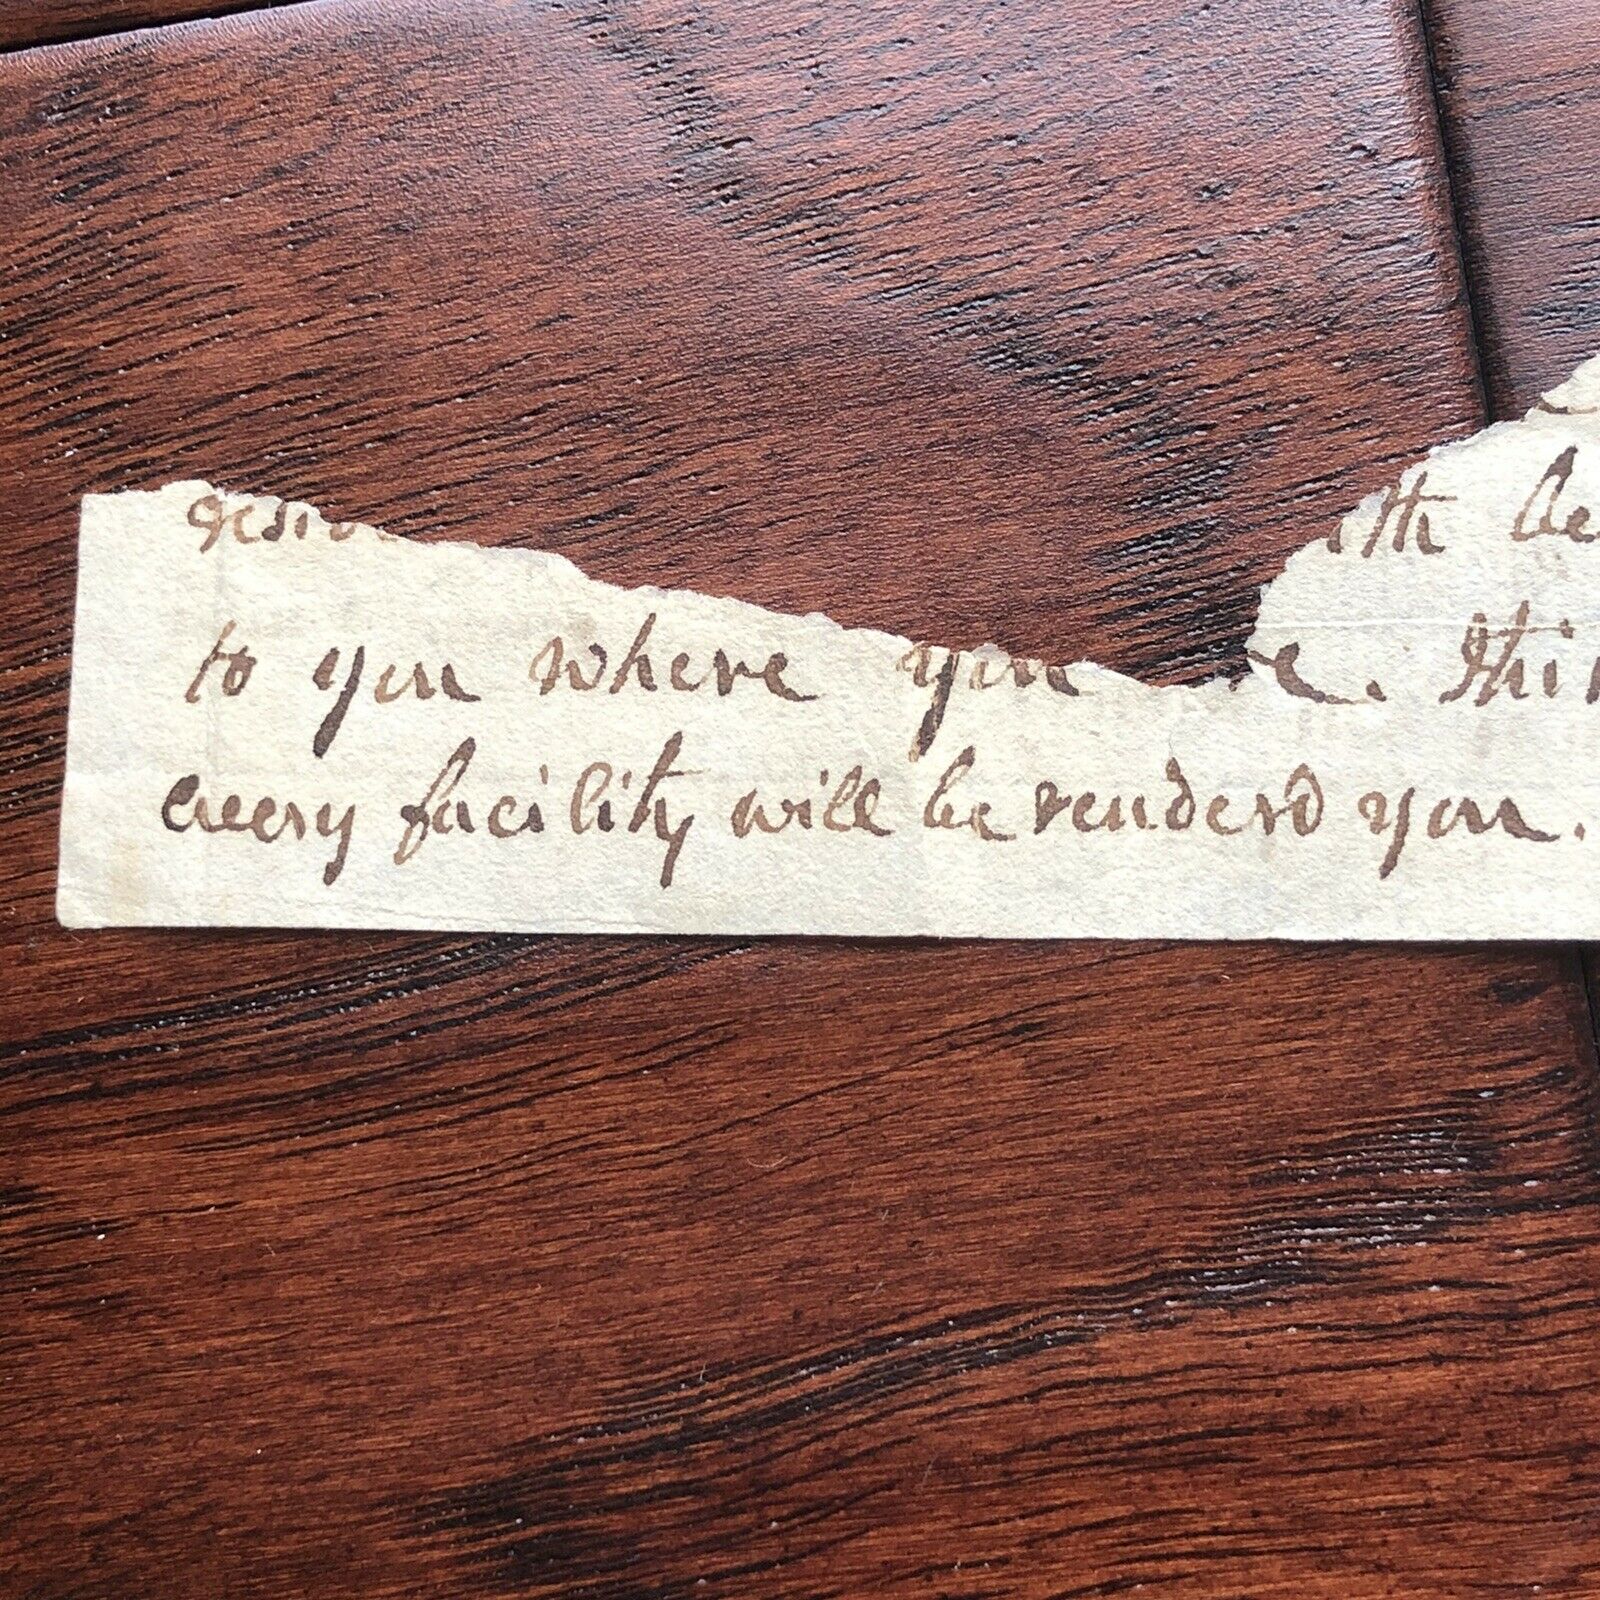 th be
to you where you are. Thi
every facility will be renderd you.